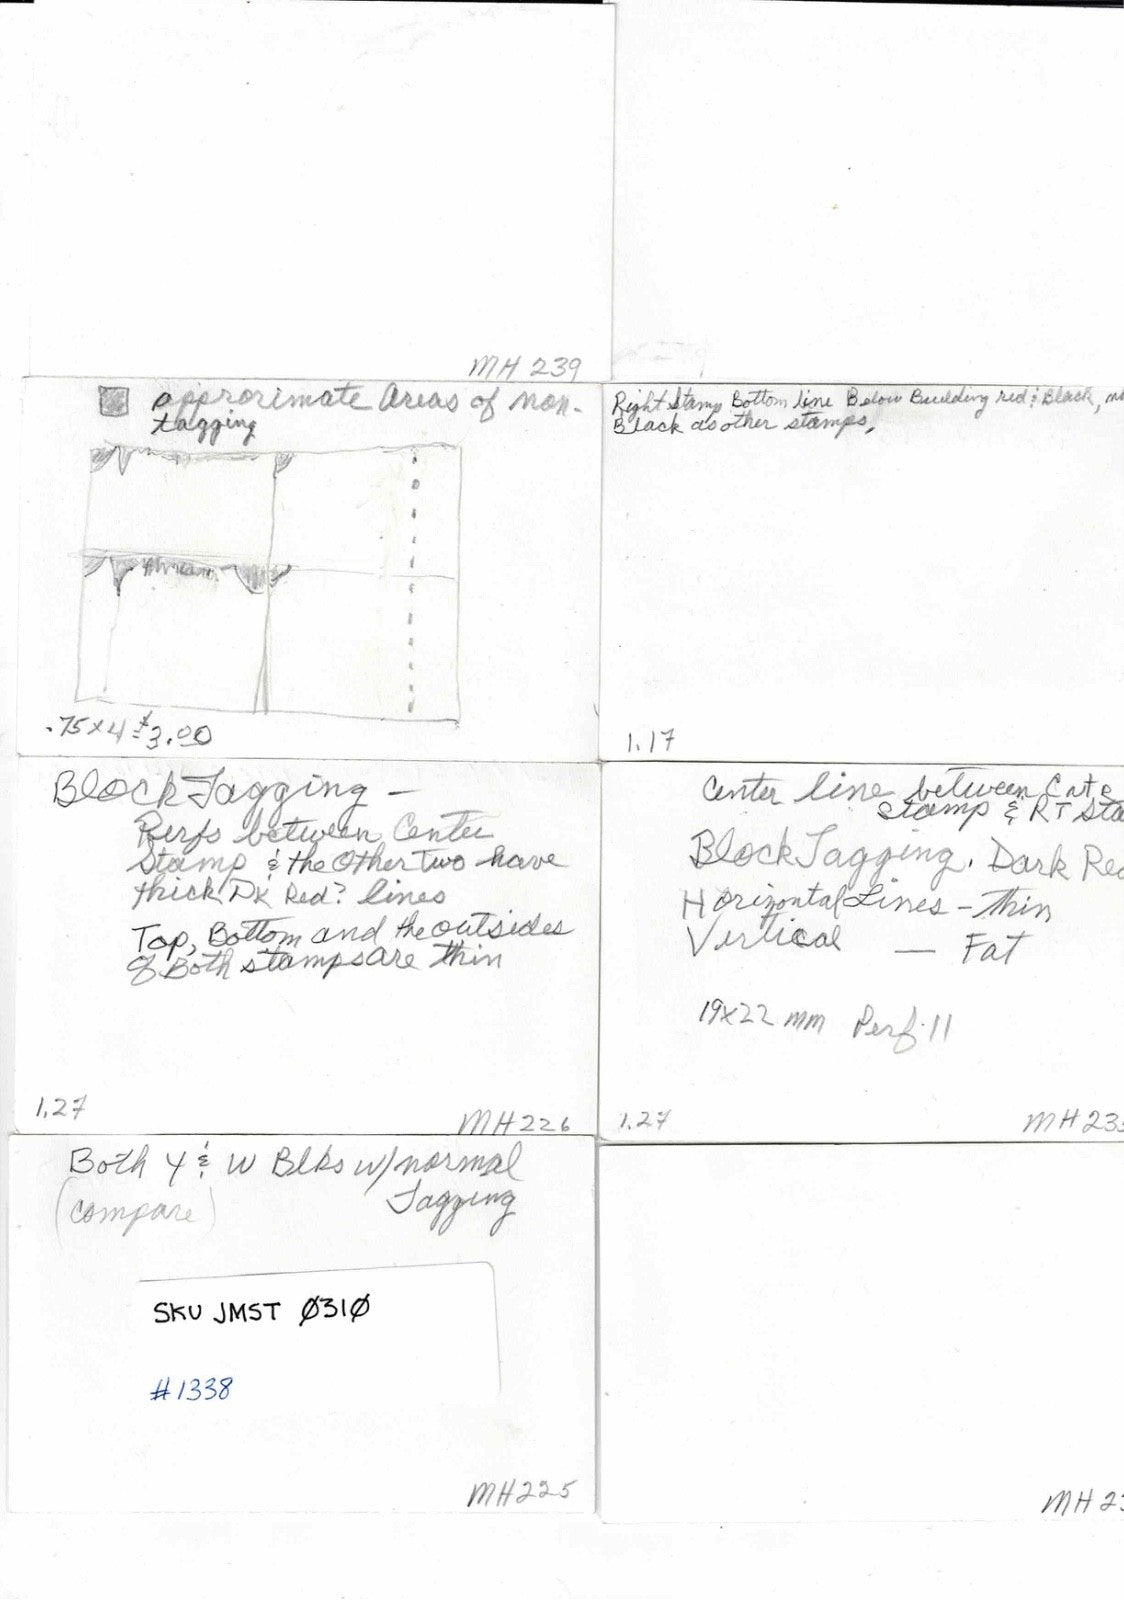 MH 239
approximate Areas of non-
tagging
.75 x 4 = $3.00
Right Stamp Bottom line Below Building red & Black,
Black as other stamps,
1.17
Block Tagging -
Perfs between Center
Stamp & the Other Two have
thick DK Red? lines
Top, Bottom and the outsides
of Both stamps are thin
1.27
MH 226
Center line between
Stamp & RT Sta
Block Tagging. Dark Red
Horizontal Lines - thin
Vertical — Fat
19x22 mm Perf 11
1.27
MH 23
Both Y & W Blks w/normal
Tagging
(compare)
SKU JMST 0310
#1338
MH 225
MH 23